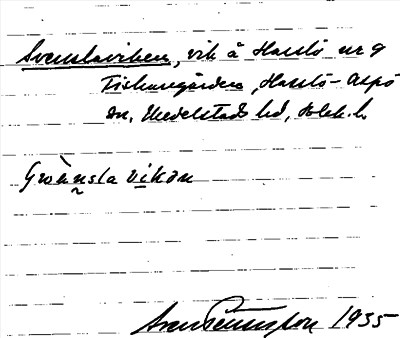 Svenslaviken, vik å Hasslö nr 9
Fiskaregården, Hasslö-Aspö
sn, Medelstads hd, Blek. l.
vikən
1935